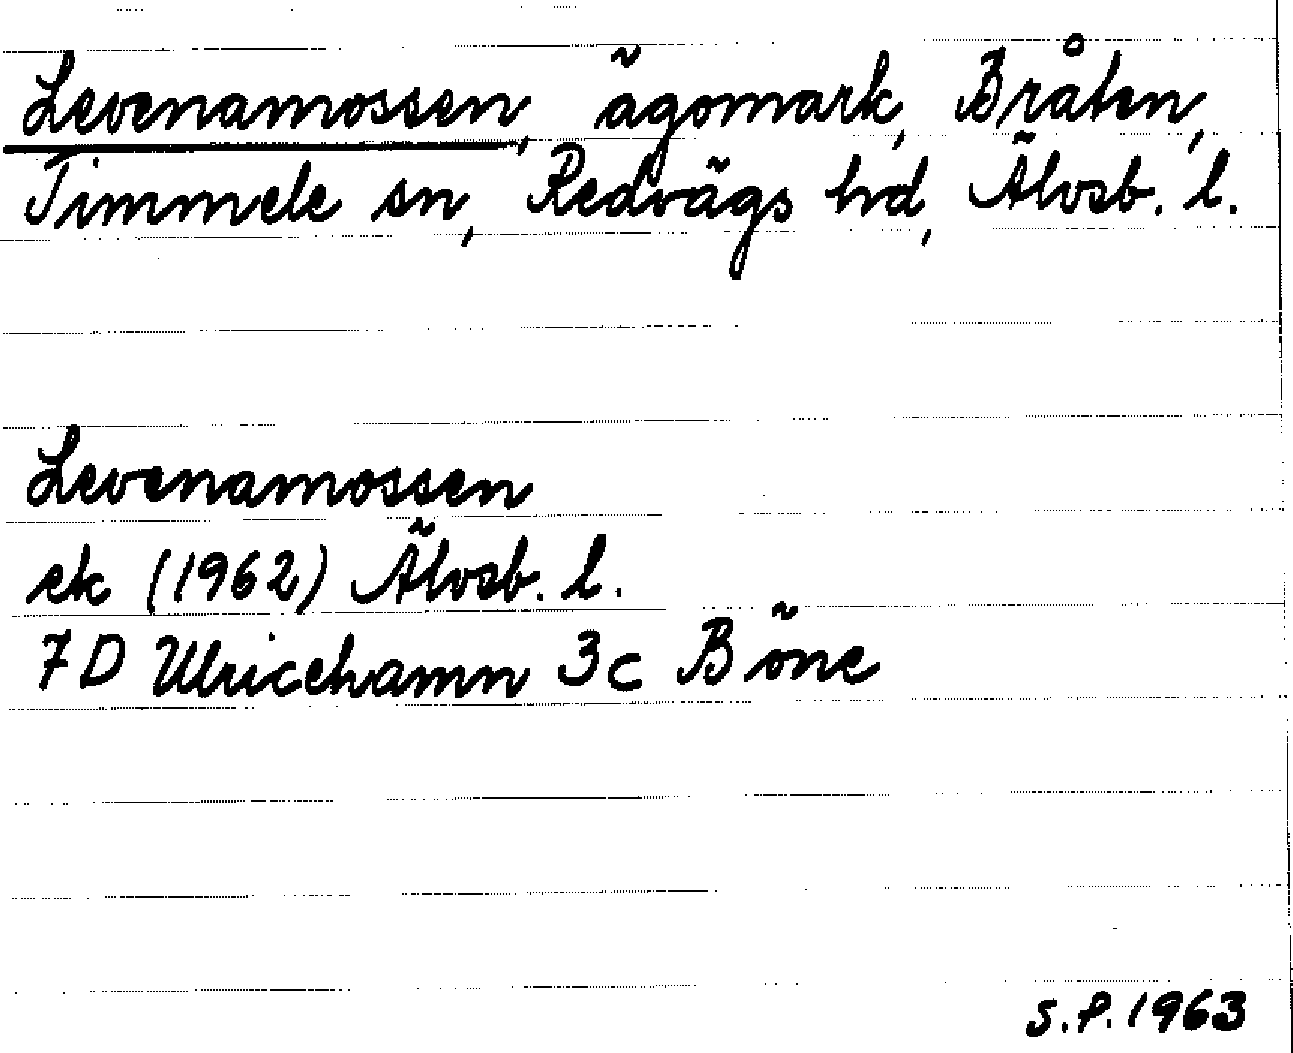 Levenamossen, ägomark, Bråten,
Timmele sn, Redvägs hd, Älvsb. l.
Levenamossen
ek (1962) Älvsb. l.
7D Ulricehamn 3c Böne
S.P. 1963